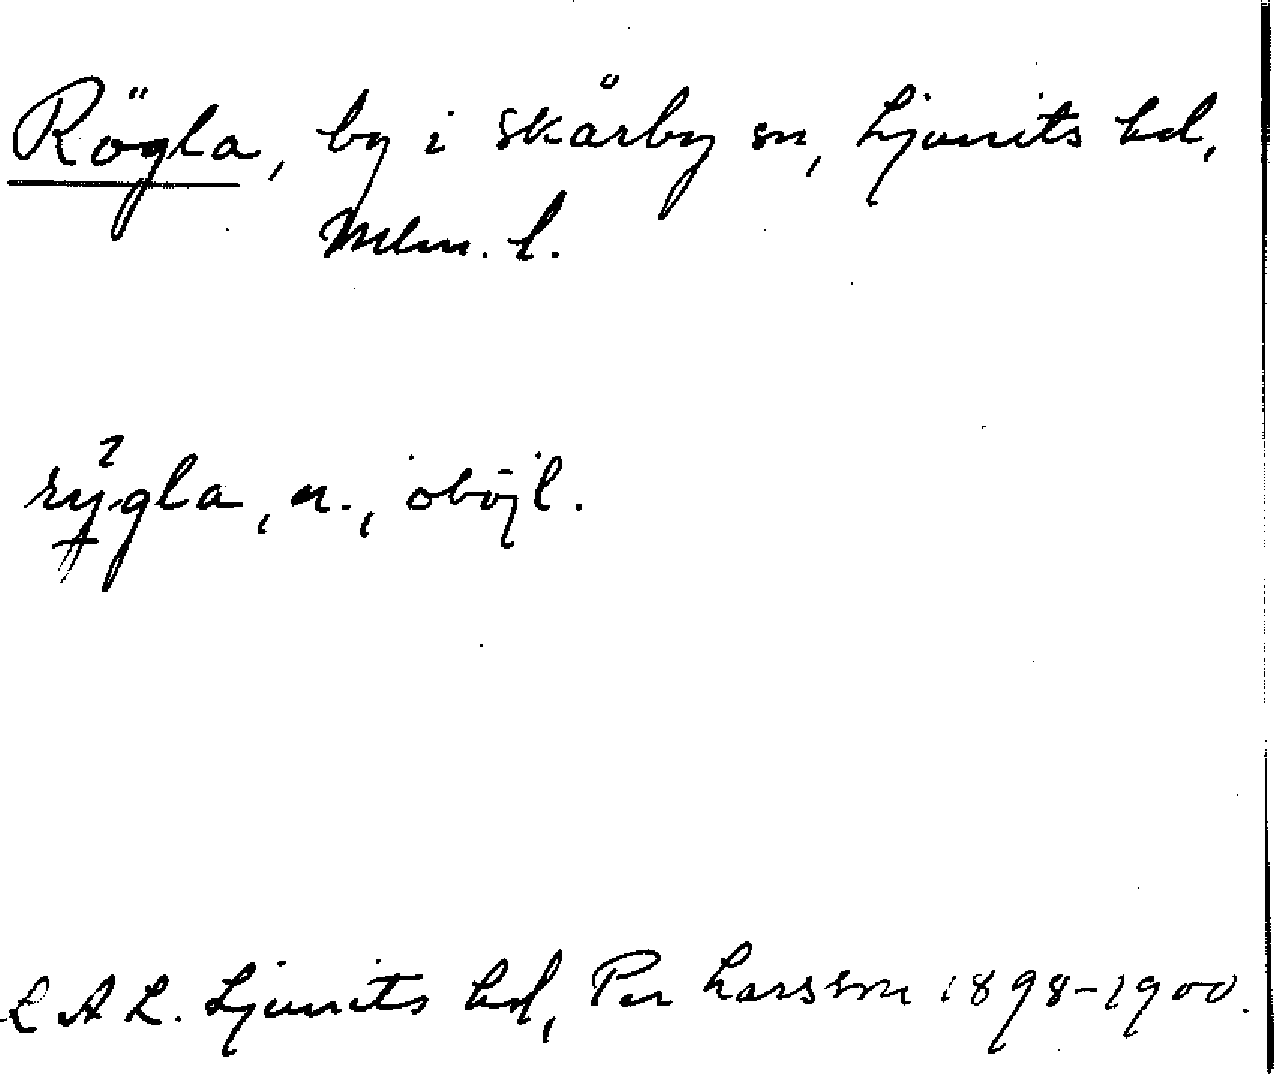 Rögla, by i Skårby sn, Ljunits hd,
Mlm. l.
rygla, n., oböjl.
L A L. Ljunits hd, Per Larsson 1898-1900.